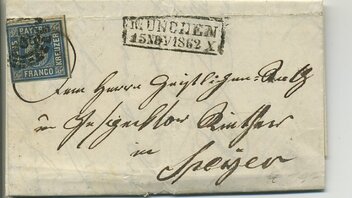 BAYERN
SECHS
KREUZER
FRANCO
MÜNCHEN
15 NOV 1862 X
Dem Herrn Geistlichen Rath
u Inspector
in
Speyer